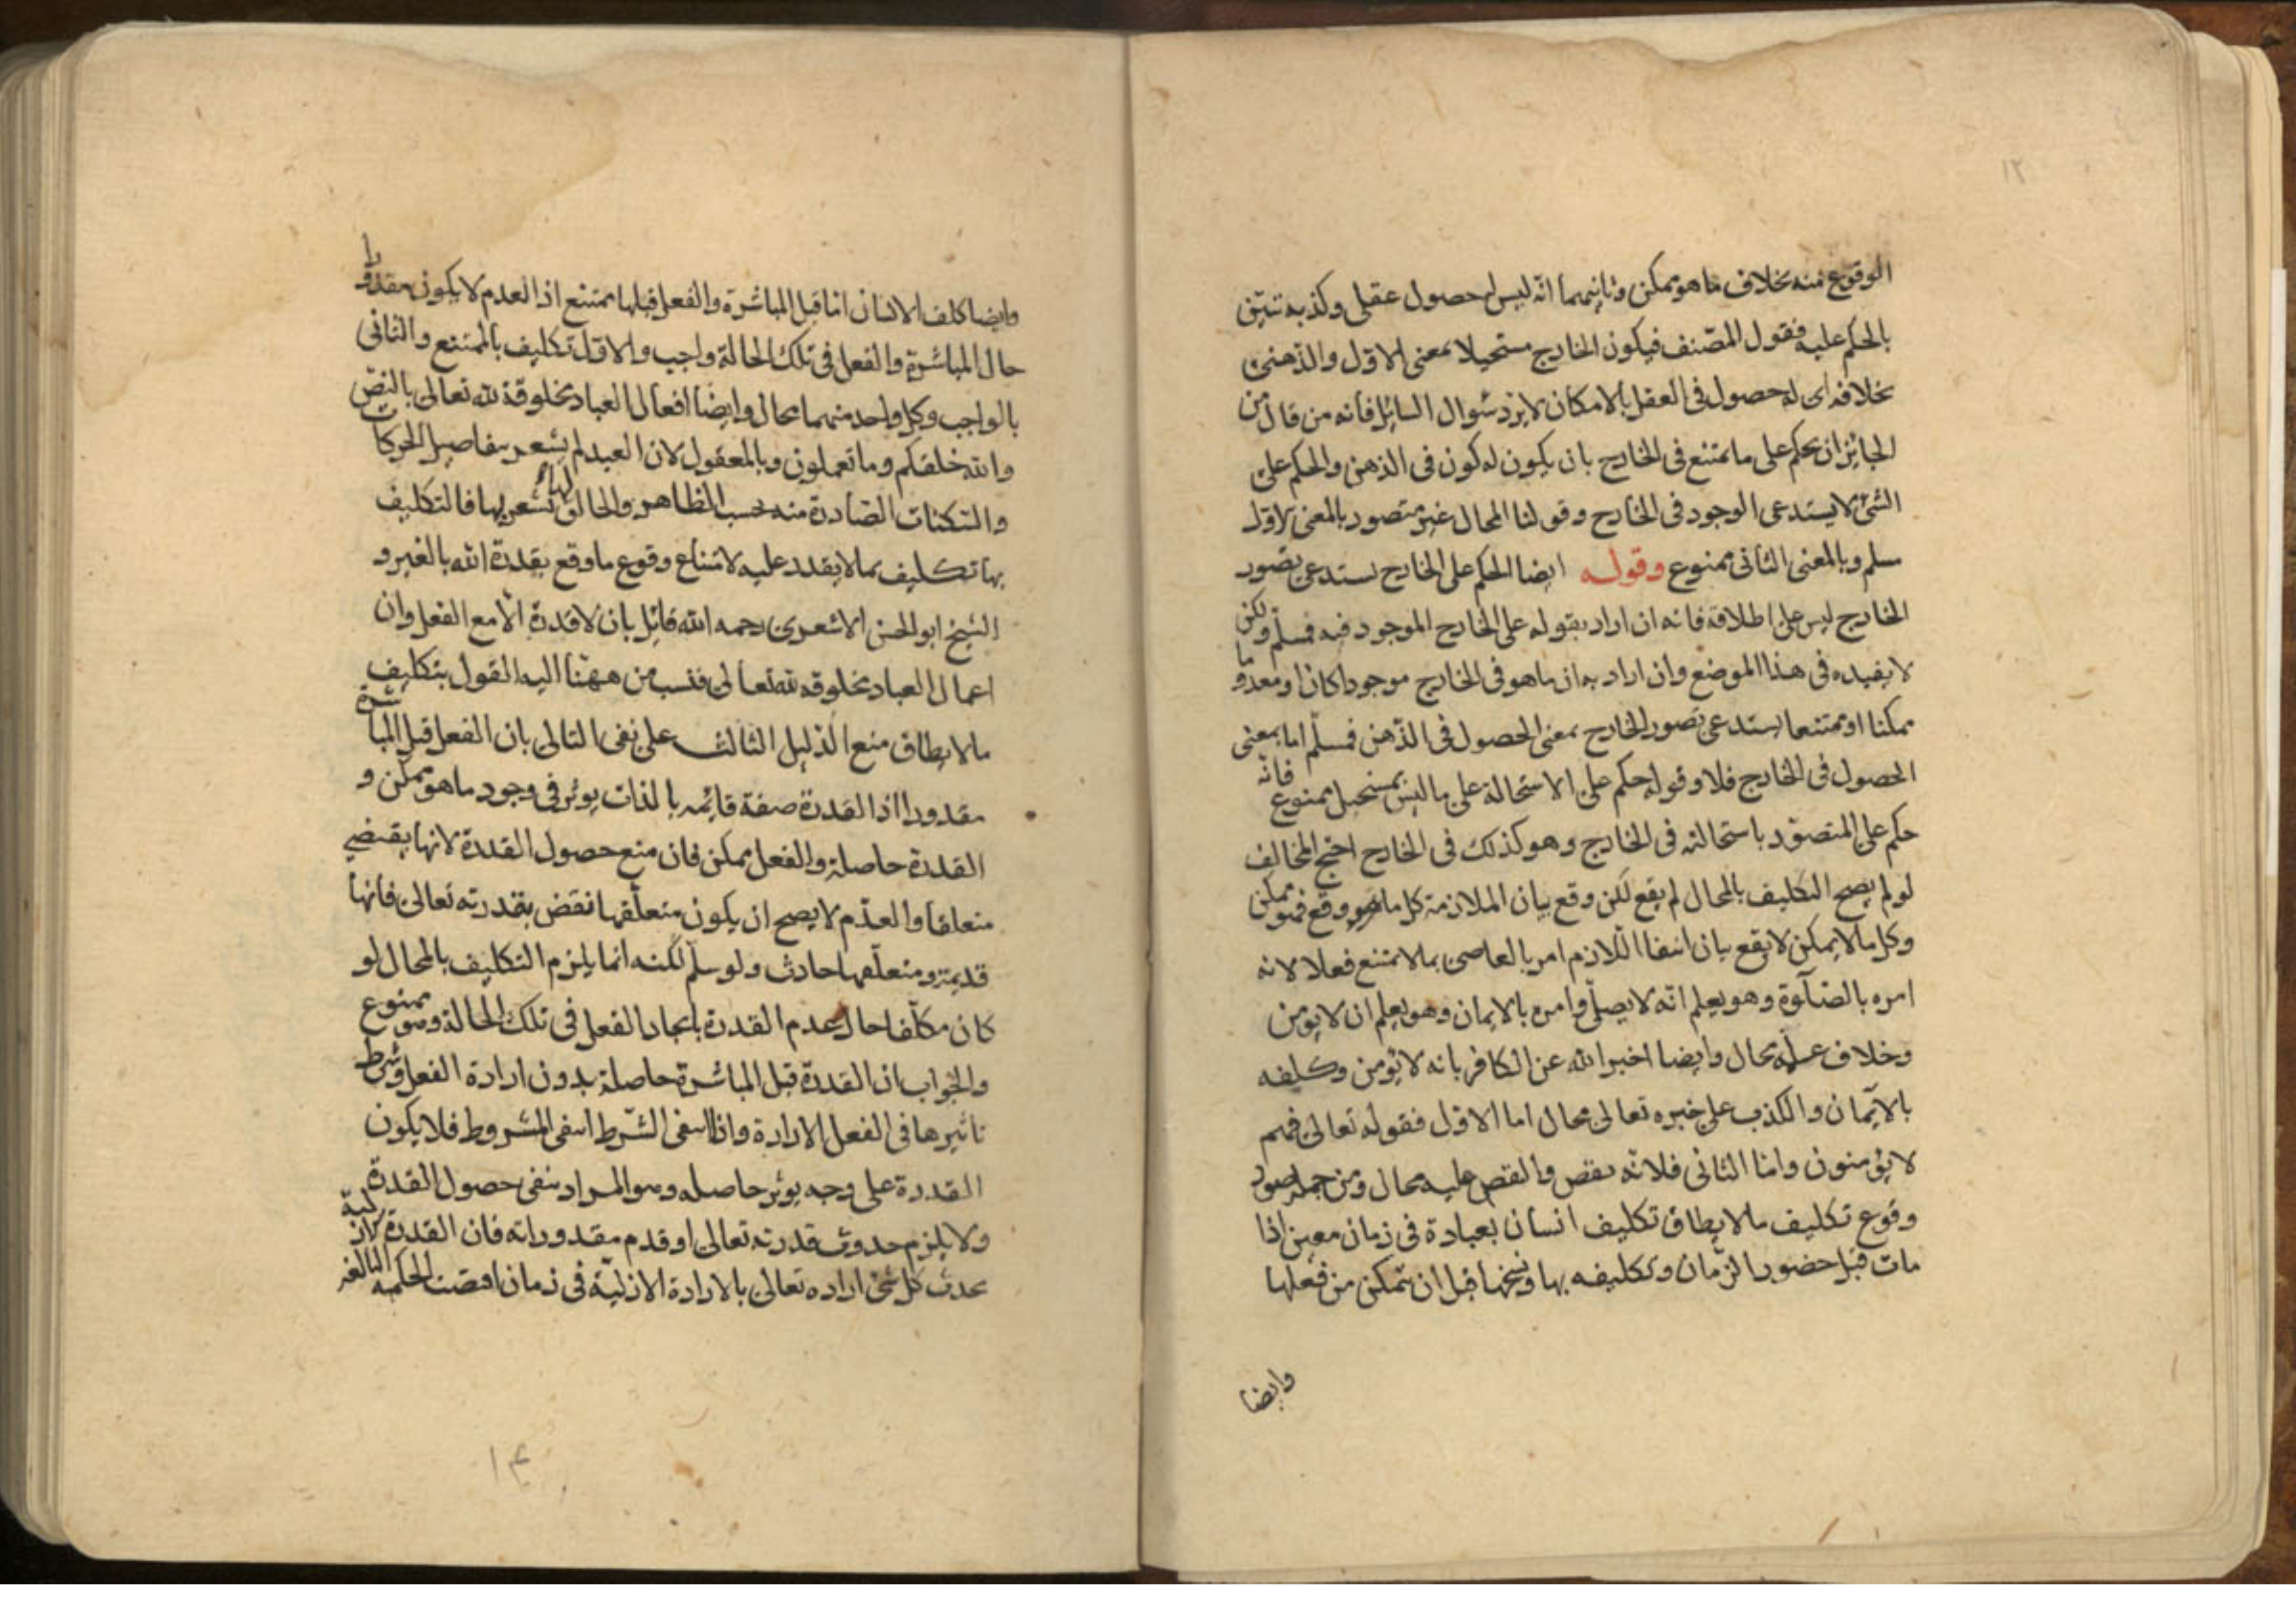 ١٢
الوقوع منه بخلاف ما هو ممكن وثانيهما انه ليس له حصول عقلى وكذبه تبيّن
بالحكم عليه فقول المصنف فيكون الخارج مستحيلا بمعنى الاول والذهنى
بخلافه اى له حصول فى العقل بالامكان لا يرد سوال السائل فانه من قال من
الجائز ان يحكم على ما يمتنع فى الخارج بان يكون له كون فى الذهن والحكم على
الشئ لا يستدعى الوجود فى الخارج وقولنا المحال غير متصور بالمعنى الاول
سلم وبالمعنى الثانى ممنوع وقوله ايضا الحكم على الخارج يستدعى تصور
الخارج ليس على اطلاقه فانه ان اراد بقوله على الخارج الموجود فيه فمسلّم ولكن
لا يفيده فى هذا الموضع وان اراد به ان ما هو فى الخارج موجودا كان او معدوما
ممكنا او ممتنعا يستدعى تصور الخارج بمعنى الحصول فى الذهن فمسلّم اما بمعنى
الحصول فى الخارج فلا وقوله حكم على الاستحالة على ما ليس بمستحيل ممنوع فانّه
حكم على المتصوّر باستحالته فى الخارج وهو كذلك فى الخارج احتج المخالف
لو لم يصح التكليف بالمحال لم يقع لكن وقع بيان الملازمة كل ما وقع فهو ممكن
وكل ما لا يمكن لا يقع بيان انتفا اللازم امر بالعاصى بما لا يمتنع فعلا لانه
امره بالصلوة وهو يعلم انّه لا يصلّى وامره بالايمان وهو يعلم ان لا يومن
وخلاف علمه محال وايضا اخبر الله عن الكافر بانه لا يؤمن وكليفه
بالايمان والكذب على خبره تعالى محال اما الاول فقوله تعالى فهم
لا يؤمنون واما الثانى فلانّه نقص والنقص عليه محال ومن جملة صور
وقوع تكليف ما لا يطاق تكليف انسان بعبادة فى زمان معين اذا
مات قبل حضور الزمان وتكليفه بها ونسخها قبل ان يتمكن من فعلها
وايضا
وايضا كلف الانسان اما قبل المباشرة والفعل قبلها ممتنع اذ العدم لا يكون مقدورا
حال المباشرة والفعل فى تلك الحالة واجب والاول تكليف بالممتنع والثانى
بالواجب وكل واحد منهما محال وايضا افعال العباد مخلوقة لله تعالى بالنصّ
والله خلقكم وما تعملون وبالمعقول لان العبد لم يشعر بتفاصيل الحركات
والسكنات الصادرة منه بحسب الظاهر والخالق لها يشعر بها فالتكليف
بها تكليف بما لا يقدر عليه لامتناع وقوع ما وقع بقدرة الله بالغير و
الشيخ ابو الحسن الاشعرى رحمه الله قائل بان لا قدرة الّا مع الفعل وان
اعمال العباد مخلوقه لله تعالى فنسب من ههنا اليه القول بتكليف
ما لا يطاق منع الدليل الثالث على نفى التالى بان الفعل قبل المباشرة
مقدورا اذ القدرة صفة قائمه بالذات يوثر فى وجود ما هو ممكن و
القدرة حاصلة والفعل ممكن فان منع حصول القدرة لانها يقتضى
متعلقا والعدم لا يصح ان يكون متعلّقها نقض بقدرته تعالى فانها
قديمة ومتعلّقها حادث ولو سلّم لكنه انما يلزم التكليف بالمحال لو
كان مكلّفا حال عدم القدرة بايجاد الفعل فى تلك الحالة وهو ممنوع
والجواب ان القدرة قبل المباشرة حاصلة بدون ارادة الفعل وشرط
تاثيرها فى الفعل الارادة واذا انتفى الشرط انتفى المشروط فلا يكون
القدرة على وجه يوثر حاصله وهو المراد بنفى حصول القدرة
ولا يلزم حدوث قدرته تعالى او قدم مقدوراته فان القدرة الازلية
يحدث كل شئ اراده تعالى بالارادة الازليّة فى زمان اقتضت الحكمة البالغة
١٤